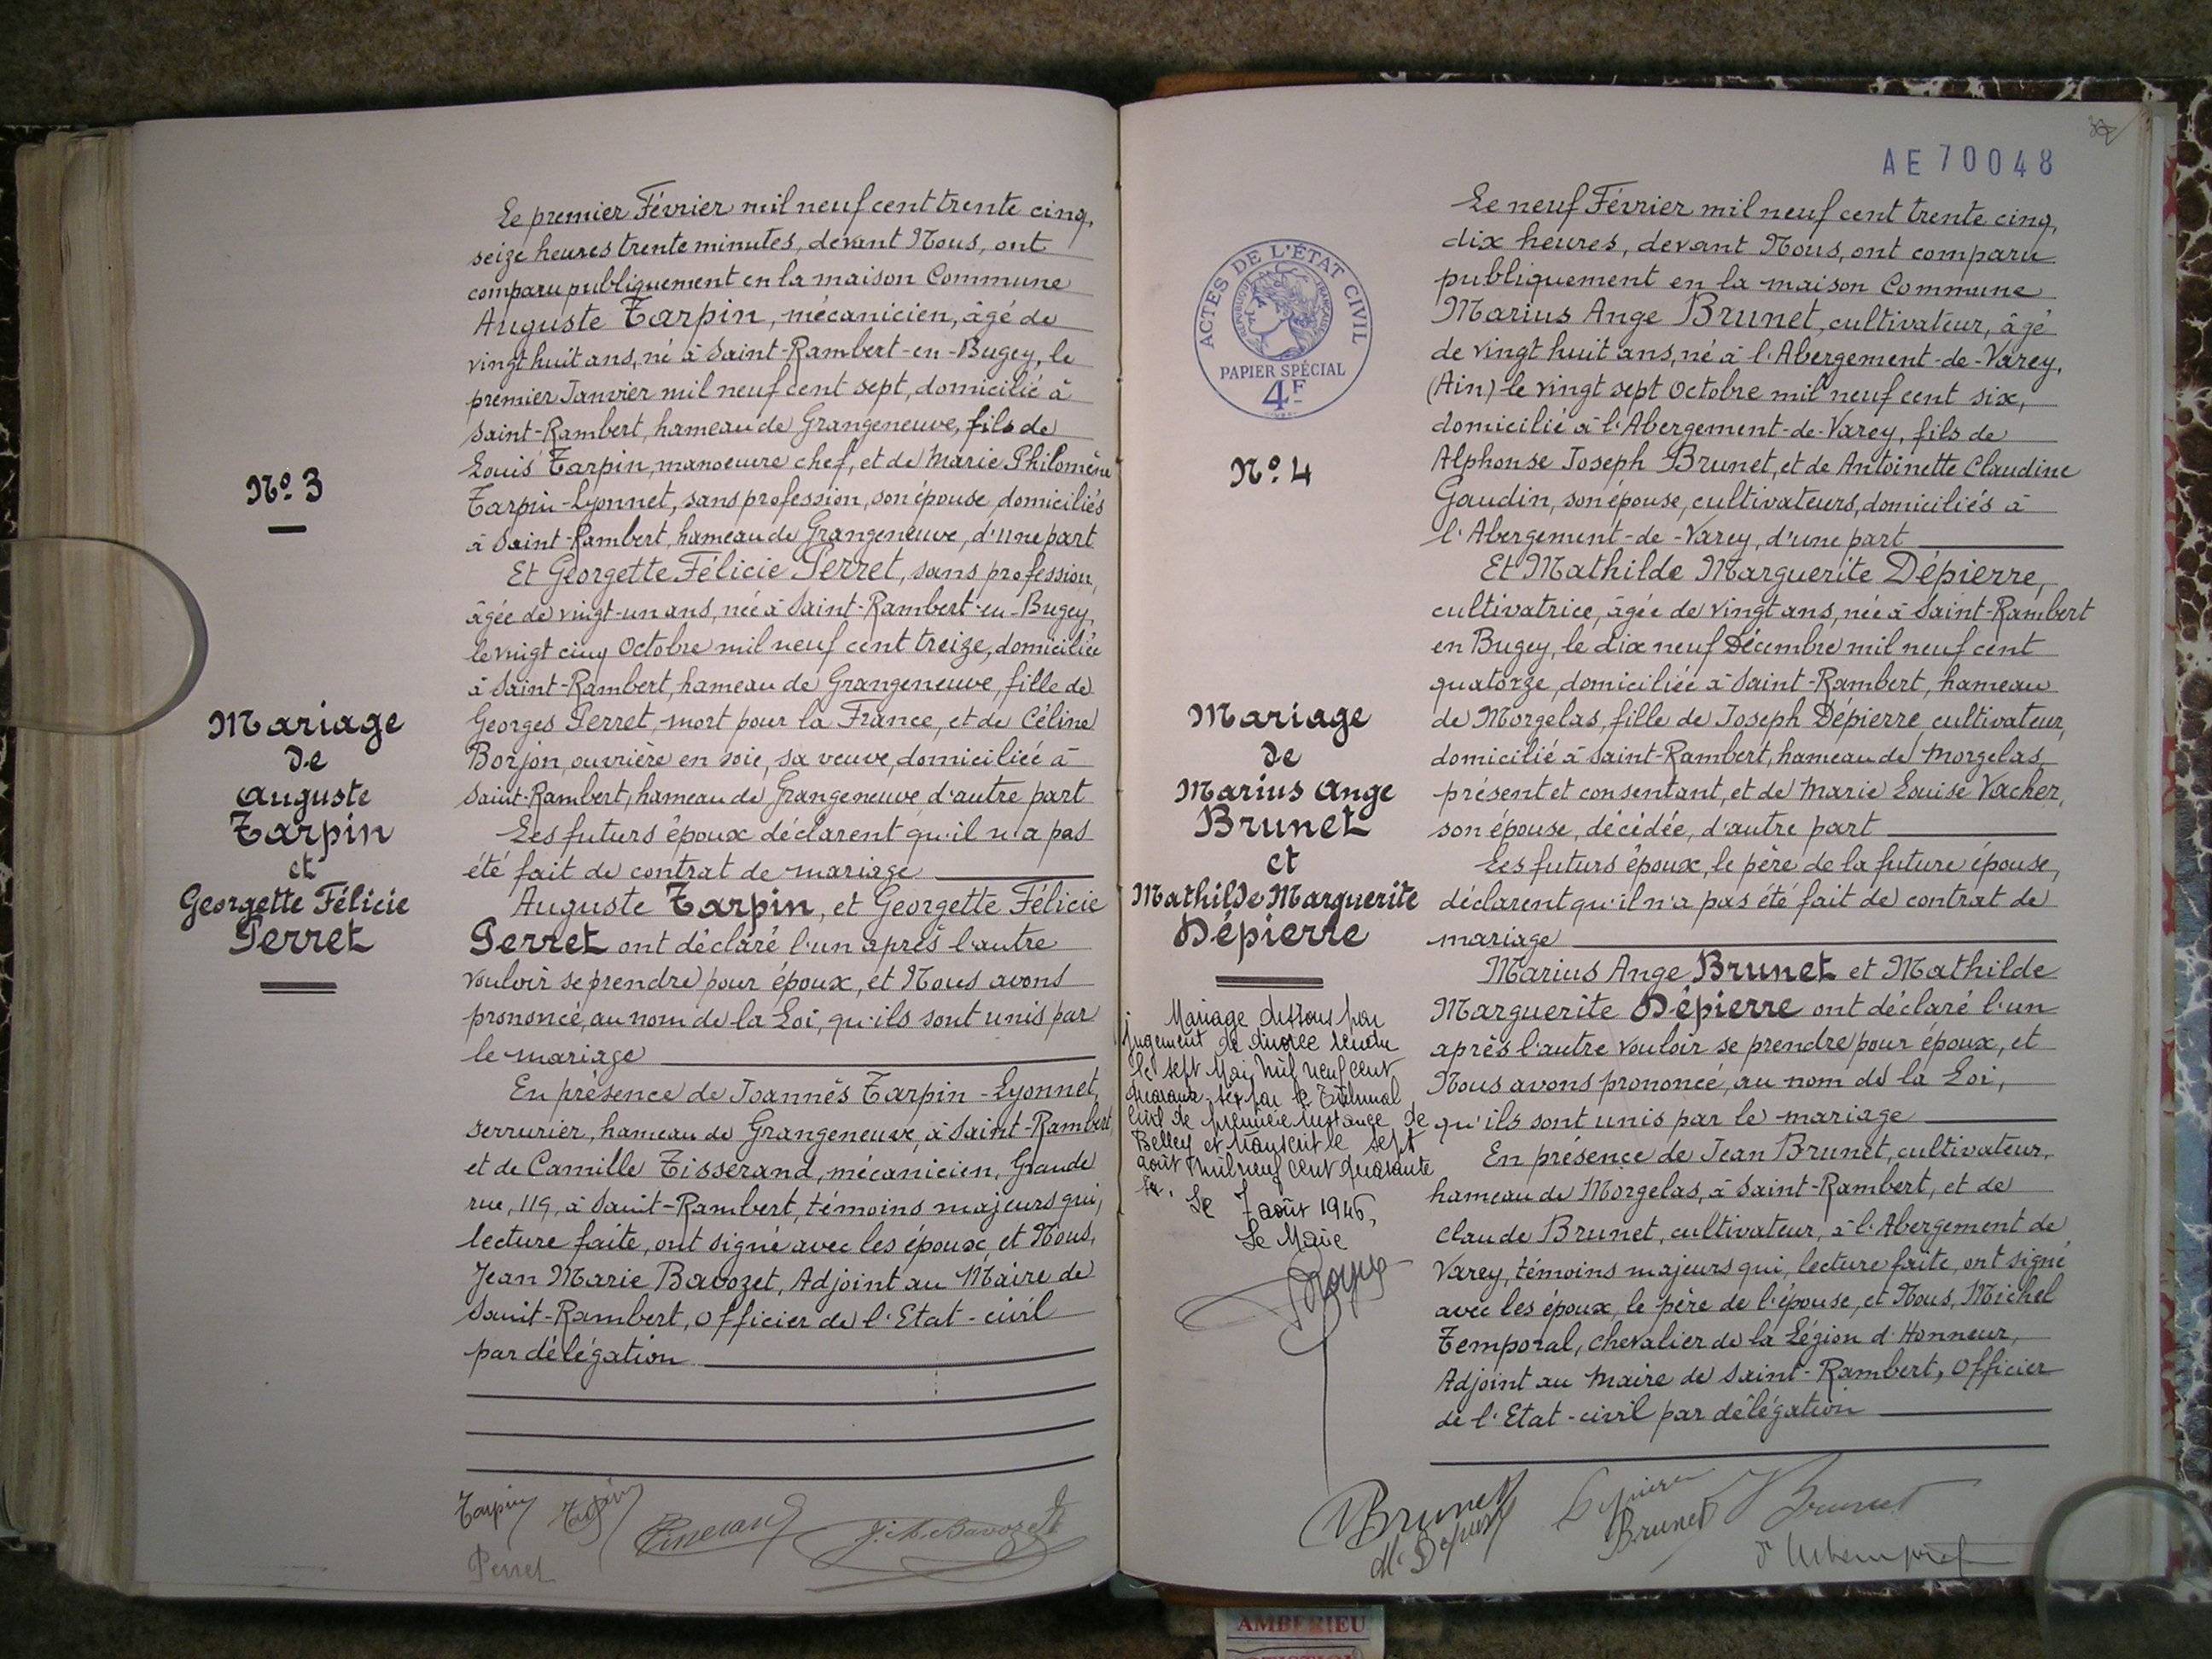 Nº 3
Mariage
de
Auguste
Tarpin
et
Georgette Félicie
Perret
Le premier Février mil neuf cent trente cinq,
seize heures trente minutes, devant Nous, ont
comparu publiquement en la maison Commune
Auguste Tarpin, mécanicien, âgé de
vingt huit ans, né à Saint-Rambert-en-Bugey, le
premier Janvier mil neuf cent sept, domicilié à
Saint-Rambert, hameau de Grangeneuve, fils de
Louis Tarpin, manoeuvre chef, et de Marie Philomène
Tarpin-Lyonnet, sans profession, son épouse, domiciliés
à Saint-Rambert, hameau de Grangeneuve, d'une part
Et Georgette Félicie Perret, sans profession,
âgée de vingt-un ans, née à Saint-Rambert-en-Bugey,
le vingt cinq Octobre mil neuf cent treize, domiciliée
à Saint-Rambert, hameau de Grangeneuve, fille de
Georges Perret, mort pour la France, et de Céline
Borjon, ouvrière en soie, sa veuve, domiciliée à
Saint-Rambert, hameau de Grangeneuve d'autre part
Les futurs époux déclarent qu'il n'a pas
été fait de contrat de mariage
Auguste Tarpin, et Georgette Félicie
Perret ont déclaré l'un après l'autre
vouloir se prendre pour époux, et Nous avons
prononcé, au nom de la Loi, qu'ils sont unis par
le mariage
En présence de Joannès Tarpin-Lyonnet,
serrurier, hameau de Grangeneuve, à Saint-Rambert,
et de Camille Tisserand, mécanicien, Grande
rue, 119, à Saint-Rambert, témoins majeurs qui,
lecture faite, ont signé avec les époux, et Nous,
Jean Marie Bavozet, Adjoint au Maire de
Saint-Rambert, Officier de l'Etat-civil
par délégation
Tarpin
J. M. Bavozet
Perret
AE 70048
ACTES DE L'ÉTAT CIVIL
RÉPUBLIQUE FRANÇAISE
PAPIER SPÉCIAL
4F
Nº 4
Mariage
de
Marius Ange
Brunet
et
Mathilde Marguerite
Dépierre
Mariage dissous par
jugement de divorce rendu
le sept Mai mil neuf cent
quarante-six par le Tribunal
Civil de première instance de
Belley et transcrit le sept
août mil neuf cent quarante
six.
Le 7 août 1946,
Le Maire
Le neuf Février mil neuf cent trente cinq,
dix heures, devant Nous, ont comparu
publiquement en la maison Commune
Marius Ange Brunet, cultivateur, âgé
de vingt huit ans, né à l'Abergement-de-Varey,
(Ain) le vingt sept Octobre mil neuf cent six,
domicilié à l'Abergement-de-Varey, fils de
Alphonse Joseph Brunet, et de Antoinette Claudine
Gaudin, son épouse, cultivateurs, domiciliés à
l'Abergement-de-Varey, d'une part
Et Mathilde Marguerite Dépierre,
cultivatrice, âgée de vingt ans, née à Saint-Rambert
en Bugey, le dix neuf Décembre mil neuf cent
quatorze, domiciliée à Saint-Rambert, hameau
de Morgelas, fille de Joseph Dépierre, cultivateur,
domicilié à Saint-Rambert, hameau de Morgelas,
présent et consentant, et de Marie Louise Vacher,
son épouse, décédée, d'autre part
Les futurs époux, le père de la future épouse,
déclarent qu'il n'a pas été fait de contrat de
mariage
Marius Ange Brunet et Mathilde
Marguerite Dépierre ont déclaré l'un
après l'autre vouloir se prendre pour époux, et
Nous avons prononcé, au nom de la Loi,
qu'ils sont unis par le mariage
En présence de Jean Brunet, cultivateur,
hameau de Morgelas, à Saint-Rambert, et de
Claude Brunet, cultivateur, à l'Abergement de
Varey, témoins majeurs qui, lecture faite, ont signé
avec les époux, le père de l'épouse, et Nous, Michel
Temporal, Chevalier de la Légion d'Honneur,
Adjoint au Maire de Saint-Rambert, Officier
de l'Etat-civil par délégation
Brunet
Brunet
Brunet
AMBERIEU